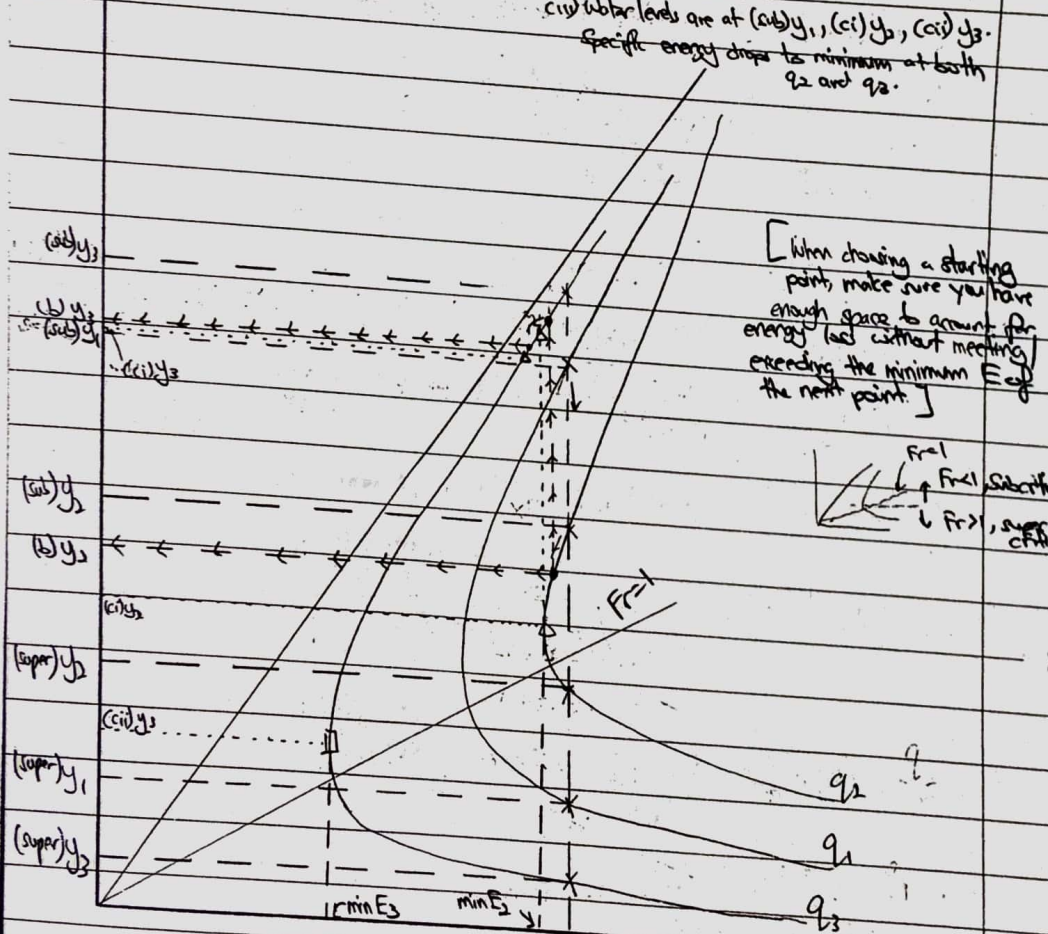 (iii) Water levels are at (sub)y₁, (ci)y₂, (cii)y₃.
Specific energy drops to minimum at both
q2 and q3.
(sub)y₃
(b)y₃
(sub)y₁
(ci)y₃
[When choosing a starting
point, make sure you have
enough space to account for
energy loss without meeting/
exceeding the minimum E of
the next point.]
Fr=1
Fr<1, subcriti
Fr>1, super
criti
(sub)y₂
(b)y₂
Fr=1
(ci)y₂
(super)y₂
(cii)y₃
(super)y₁
(super)y₃
q₂
q₁
q₃
min E₃
min E₂